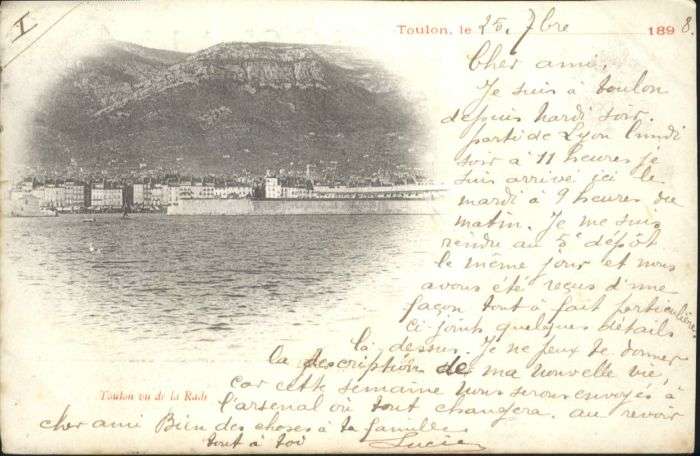 I
Toulon, le 25, 7bre 1898.
Cher ami.
Je suis à toulon
depuis mardi soir.
parti de Lyon lundi
soir à 11 heures je
suis arrivé ici le
mardi à 9 heures du
matin. Je me suis
rendu au 5e dépôt
le même jour et nous
avons été reçus d'une
façon tout à fait particulière
ci joint quelques détails
là dessus. Je ne peux te donner
la description de ma nouvelle vie,
car cette semaine nous serons envoyés à
l'arsenal où tout changera. au revoir
cher ami Bien des choses à ta famille
tout à toi Lucien
Toulon vu de la Rade